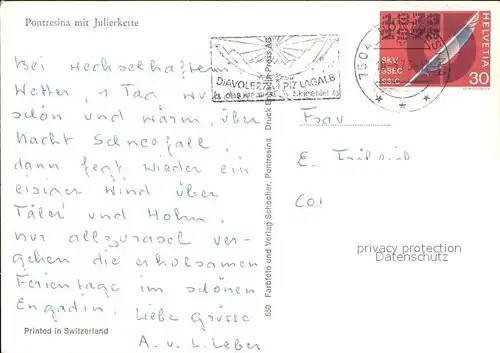 Pontresina mit Julierkette
Bei wechselhaftem
Wetter, 1 Tag
schön und warm, über
Nacht Schneefall
dann fegt wieder ein
eisiger Wind über
Täler und Höhn.
Nur allzurasch ver-
gehen die erholsamen
Ferientage im schönen
Engadin. Liebe Grüsse
A. u. L. Leber
Printed in Switzerland
550 Farbfoto und Verlag Schocher, Pontresina Druck Engadin Press AG
DIAVOLEZZA PIZ LAGALB
7504
HELVETIA
SKV
SSEC
30
Frau
E.
privacy protection
Datenschutz